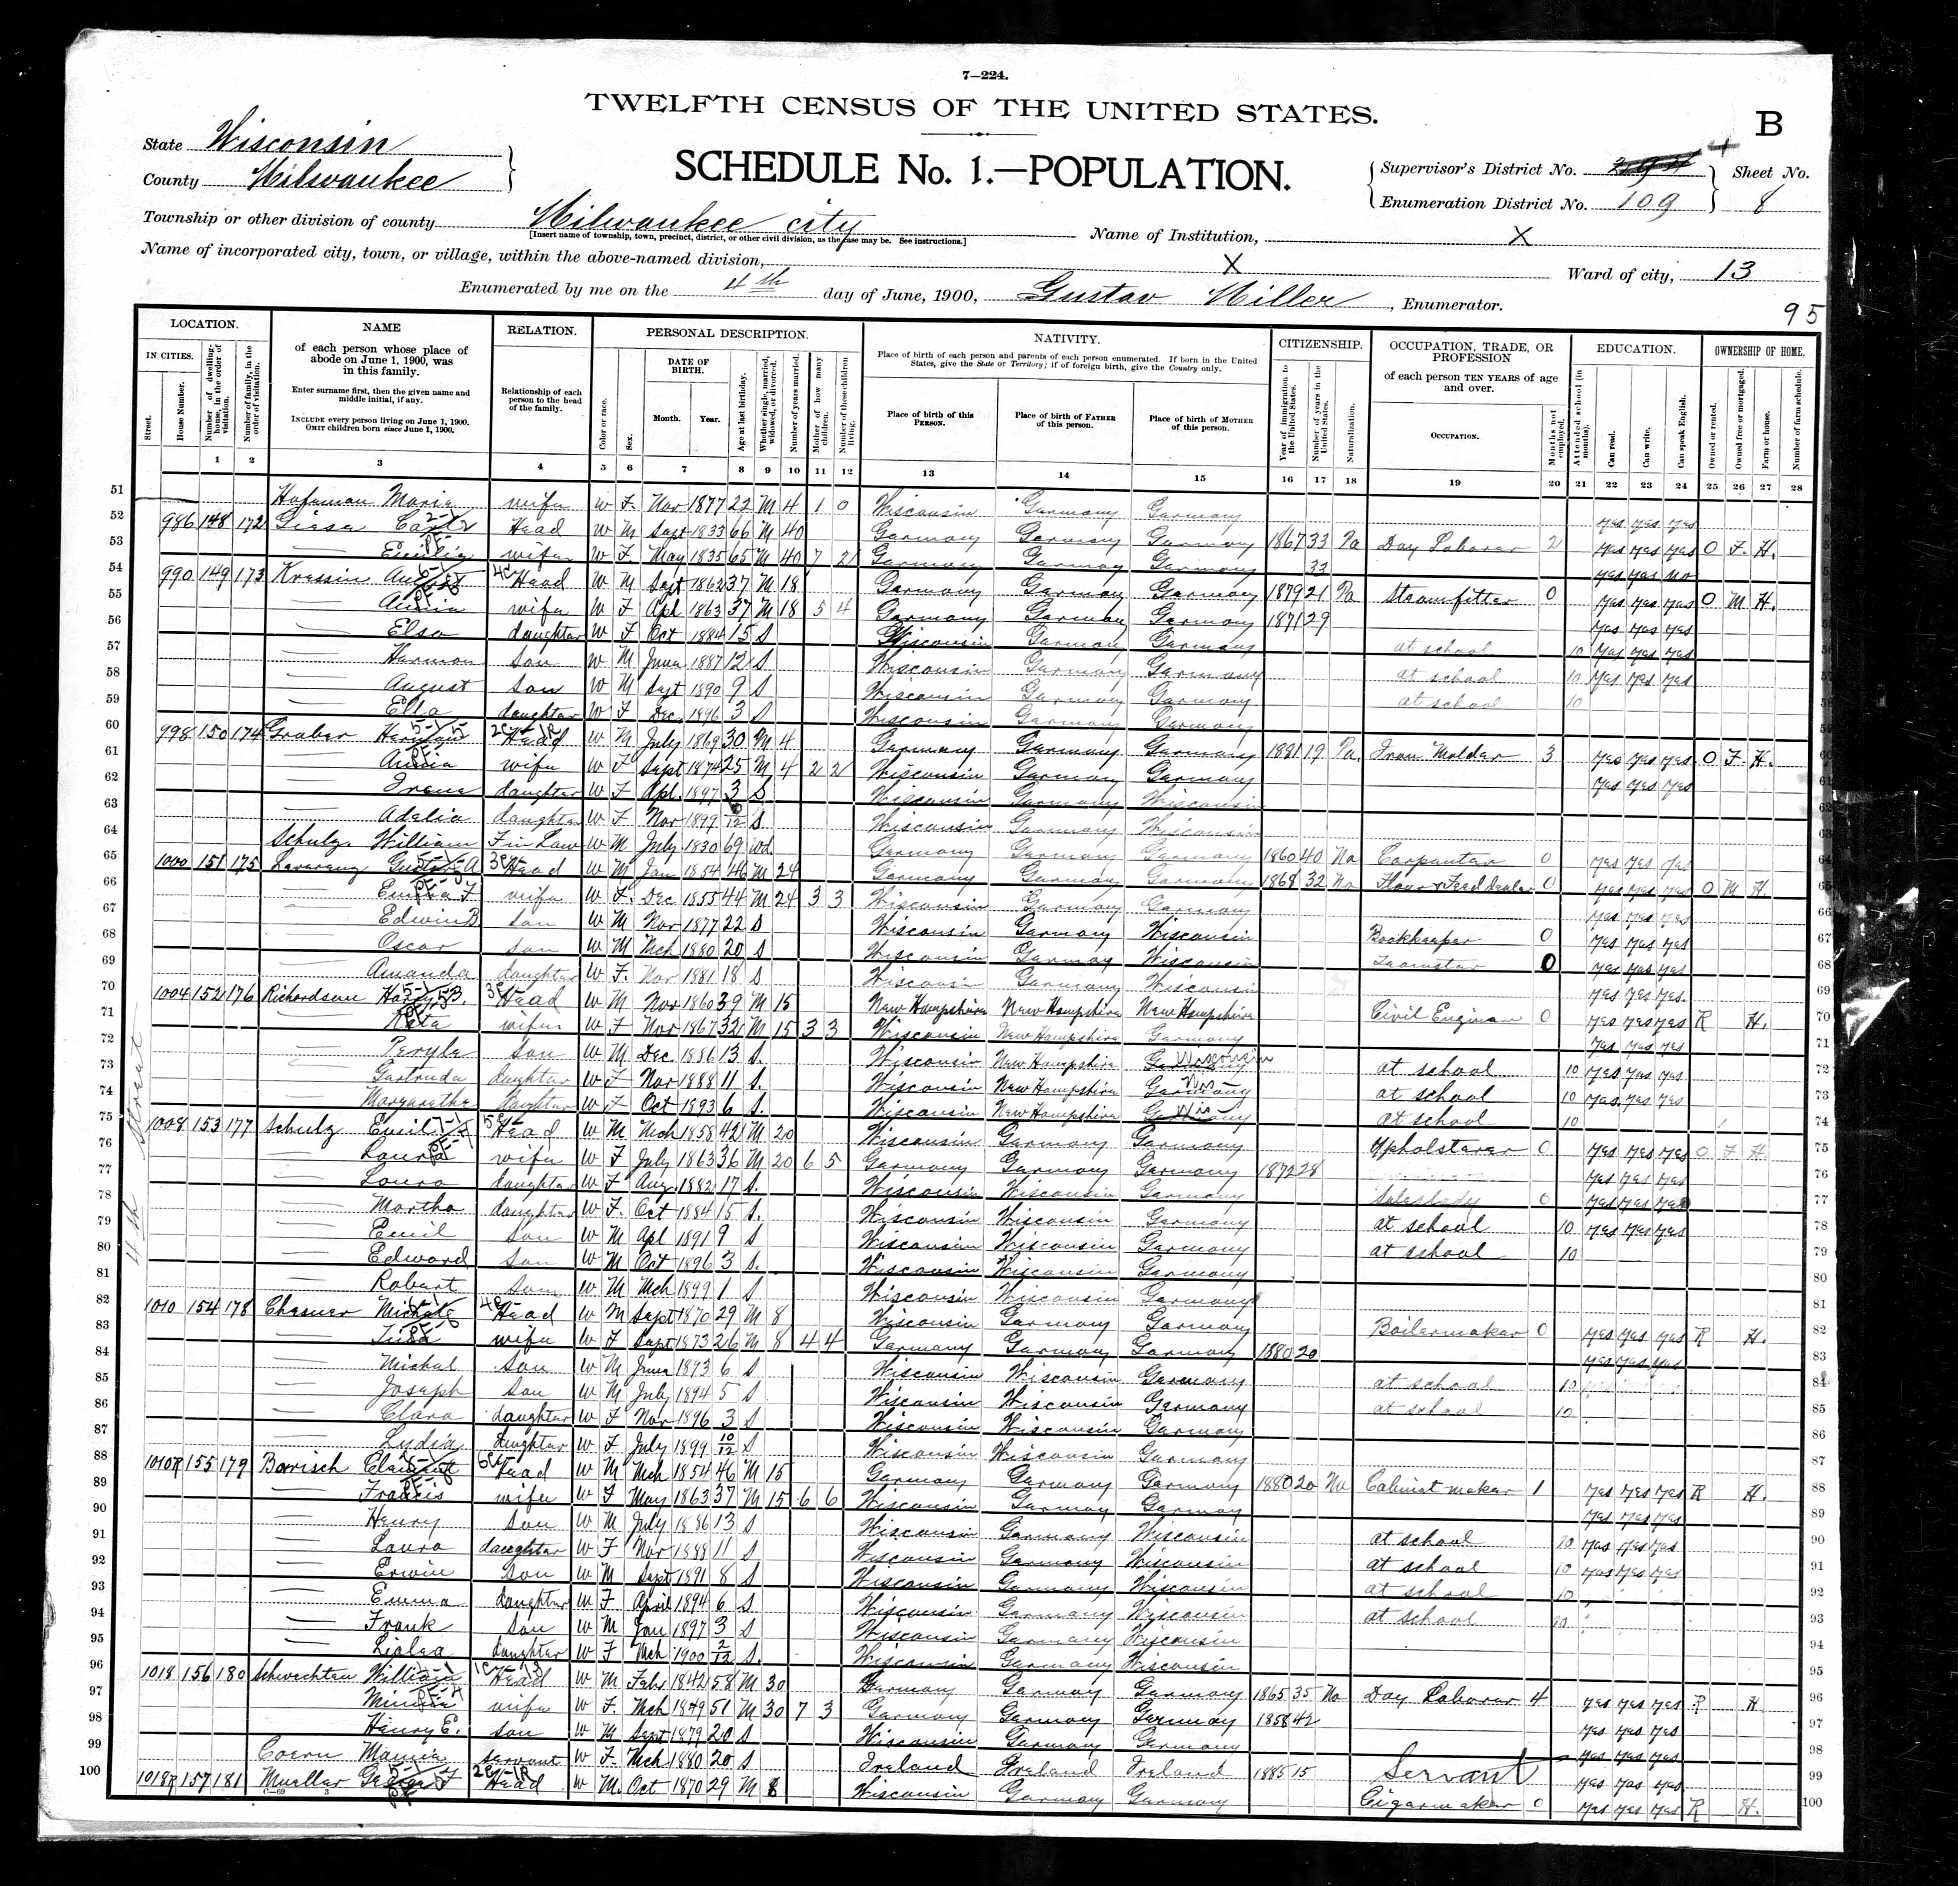 7—224.
TWELFTH CENSUS OF THE UNITED STATES.
B
State Wisconsin
County Milwaukee
SCHEDULE No. 1.—POPULATION.
Supervisor's District No.
Enumeration District No. 109
Sheet No. 8
Township or other division of county Milwaukee city
[Insert name of township, town, precinct, district, or other civil division, as the case may be. See instructions.]
Name of Institution, X
Name of incorporated city, town, or village, within the above-named division, X
Ward of city, 13
Enumerated by me on the 4th day of June, 1900, Gustav Miller, Enumerator.
95
LOCATION.
IN CITIES.
Street.
House Number.
Number of dwelling-house, in the order of visitation.
Number of family, in the order of visitation.
NAME
of each person whose place of abode on June 1, 1900, was in this family.
Enter surname first, then the given name and middle initial, if any.
INCLUDE every person living on June 1, 1900.
OMIT children born since June 1, 1900.
RELATION.
Relationship of each person to the head of the family.
PERSONAL DESCRIPTION.
Color or race.
Sex.
DATE OF BIRTH.
Month. Year.
Age at last birthday.
Whether single, married, widowed, or divorced.
Number of years married.
Mother of how many children.
Number of these children living.
NATIVITY.
Place of birth of each person and parents of each person enumerated. If born in the United States, give the State or Territory; if of foreign birth, give the Country only.
Place of birth of this PERSON.
Place of birth of FATHER of this person.
Place of birth of MOTHER of this person.
CITIZENSHIP.
Year of immigration to the United States.
Number of years in the United States.
Naturalization.
OCCUPATION, TRADE, OR PROFESSION
of each person TEN YEARS of age and over.
OCCUPATION.
Months not employed.
EDUCATION.
Attended school (in months).
Can read.
Can write.
Can speak English.
OWNERSHIP OF HOME.
Owned or rented.
Owned free or mortgaged.
Farm or house.
Number of farm schedule.
1 2 3 4 5 6 7 8 9 10 11 12 13 14 15 16 17 18 19 20 21 22 23 24 25 26 27 28
11th Street
51 Maria wife W F Mar 1877 22 M 4 1 0 Wisconsin Germany Germany yes yes yes
52 986 148 172 Giese Head W M Sept 1833 66 M 40 Germany Germany Germany 1867 33 Pa Day Laborer 2 yes yes yes O F H.
53 Emilie wife W F May 1835 65 M 40 7 2 Germany Germany Germany 33 yes yes no
54 990 149 173 Kressin August Head W M Sept 1862 37 M 18 Germany Germany Germany 1879 21 Pa Steamfitter 0 yes yes yes O M H.
55 wife W F Apl 1863 37 M 18 5 4 Germany Germany Germany 1871 29 yes yes yes
56 Elsa daughter W F Oct 1884 15 S Wisconsin Germany Germany at school 10 yes yes yes
57 Herman son W M June 1887 12 S Wisconsin Germany Germany at school 10 yes yes yes
58 August son W M Sept 1890 9 S Wisconsin Germany Germany at school 10
59 Ella daughter W F Dec 1896 3 S Wisconsin Germany Germany
60 998 150 174 Graber Herman Head W M July 1869 30 M 4 Germany Germany Germany 1881 19 Pa. Iron Molder 3 yes yes yes O F. H.
61 wife W F Sept 1874 25 M 4 2 2 Wisconsin Germany Germany yes yes yes
62 Irene daughter W F Apl. 1897 3 S Wisconsin Germany Wisconsin
63 Adelia daughter W F Nov 1899 6/12 S Wisconsin Germany Wisconsin
64 Schulz William F in Law W M July 1830 69 Wd. Germany Germany Germany 1860 40 Na Carpenter 0 yes yes yes
65 1000 151 175 Gustav A Head W M Jan 1854 46 M 24 Germany Germany Germany 1868 32 Na Flour & Feed dealer 0 yes yes yes O M H.
66 Emma F wife W F. Dec 1855 44 M 24 3 3 Wisconsin Germany Germany yes yes yes
67 Edwin B son W M Nov 1877 22 S Wisconsin Germany Wisconsin Bookkeeper 0 yes yes yes
68 Oscar son W M Mch 1880 20 S Wisconsin Germany Wisconsin Teamster 0 yes yes yes
69 Amanda daughter W F. Nov 1881 18 S Wisconsin Germany Wisconsin yes yes yes.
70 1004 152 176 Richardson Harry B. Head W M Nov 1860 39 M 15 New Hampshire New Hampshire New Hampshire Civil Engineer 0 yes yes yes R H.
71 Kate wife W F Nov 1867 32 M 15 3 3 Wisconsin New Hampshire Germany yes yes yes
72 Peryle son W M Dec. 1886 13 S. Wisconsin New Hampshire Wisconsin at school 10 yes yes yes
73 Gertrude daughter W F Nov 1888 11 S. Wisconsin New Hampshire Wis at school 10 yes yes yes
74 Margarethe daughter W F Oct 1893 6 S. Wisconsin New Hampshire Wis at school 10
75 1008 153 177 Schulz Emil Head W M Mch 1858 42 M 20 Wisconsin Germany Germany Upholsterer 0 yes yes yes O F H.
76 Laura wife W F July 1863 36 M 20 6 5 Germany Germany Germany 1872 28 yes yes yes
77 Laura daughter W F Aug. 1882 17 S. Wisconsin Wisconsin Germany Saleslady 0 yes yes yes
78 Martha daughter W F. Oct 1884 15 S. Wisconsin Wisconsin Germany at school 10 yes yes yes
79 Emil son W M Apl 1891 9 S Wisconsin Wisconsin Germany at school 10
80 Edward son W M Oct 1896 3 S. Wisconsin Wisconsin Germany
81 Robert son W M Mch 1899 1 S Wisconsin Wisconsin Germany
82 1010 154 178 Chesner Head W M Sept 1870 29 M 8 Wisconsin Germany Germany Boilermaker 0 yes yes yes R H.
83 wife W F Sept 1873 26 M 8 4 4 Germany Germany Germany 1880 20 yes yes yes
84 Michal son W M June 1893 6 S Wisconsin Wisconsin Germany at school 10
85 Joseph son W M July 1894 5 S Wisconsin Wisconsin Germany at school 10
86 Clara daughter W F Nov 1896 3 S Wisconsin Wisconsin Germany
87 Lydia daughter W F July 1899 10/12 S Wisconsin Wisconsin Germany
88 1010R 155 179 Barisch Head W M Mch 1854 46 M 15 Germany Germany Germany 1880 20 Na Cabinet maker 1 yes yes yes R H.
89 Francis wife W F May 1863 37 M 15 6 6 Wisconsin Germany Germany yes yes yes
90 Henry son W M July 1886 13 S Wisconsin Germany Wisconsin at school 10 yes yes yes
91 Laura daughter W F Nov 1888 11 S Wisconsin Germany Wisconsin at school 10 yes yes yes
92 Erwin son W M Sept 1891 8 S Wisconsin Germany Wisconsin at school 10
93 Emma daughter W F April 1894 6 S Wisconsin Germany Wisconsin at school 10
94 Frank son W M Jan 1897 3 S Wisconsin Germany Wisconsin
95 daughter W F Mch 1900 2/12 S. Wisconsin Germany Wisconsin
96 1018 156 180 Schwechten William Head W M Febr 1842 58 M 30 Germany Germany Germany 1865 35 Na Day Laborer 4 yes yes yes R H
97 Minnie wife W F. Mch 1849 51 M 30 7 3 Germany Germany Germany 1858 42 yes yes yes
98 Henry E. son W M Sept 1879 20 S Wisconsin Germany Germany yes yes yes
99 Mamie servant W F. Mch 1880 20 S Ireland Ireland Ireland 1885 15 Servant yes yes yes
100 1018R 157 181 Mueller F Head W M. Oct 1870 29 M Wisconsin Germany Germany Cigarmaker 0 yes yes yes R H.